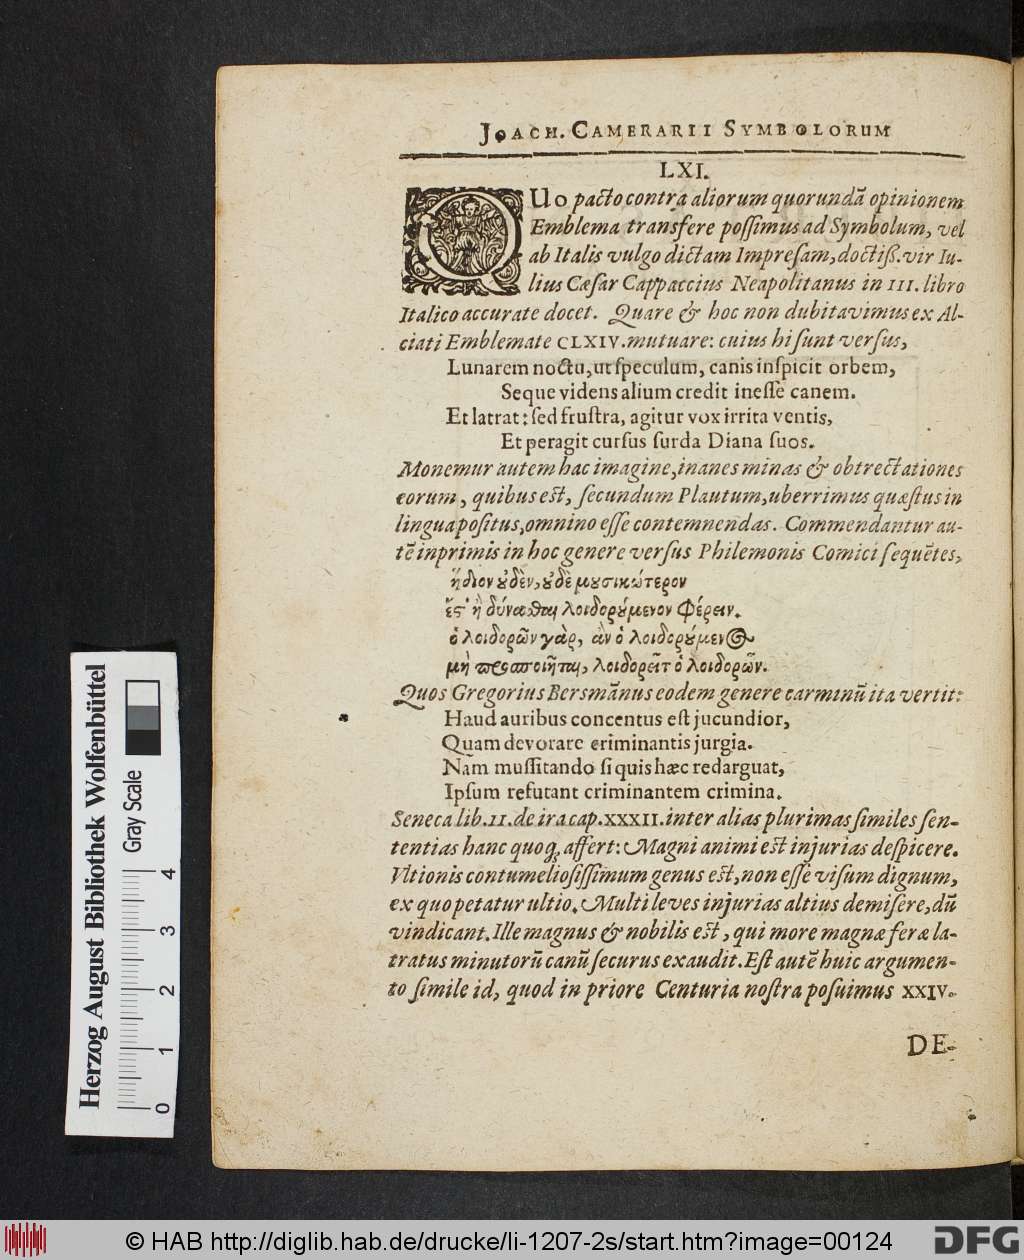 JOACH. CAMERARII SYMBOLORUM
LXI.
QUo pacto contra aliorum quorundā opinionem
Emblema transfere poſſimus ad Symbolum, vel
ab Italis vulgo dictam Impreſam, doctiß. vir Iu-
lius Cæſar Cappaccius Neapolitanus in III. libro
Italico accurate docet. Quare & hoc non dubitavimus ex Al-
ciati Emblemate CLXIV. mutuare: cuius hi ſunt verſus,
Lunarem noctu, ut ſpeculum, canis inſpicit orbem,
Seque videns alium credit ineſſe canem.
Et latrat: ſed fruſtra, agitur vox irrita ventis,
Et peragit curſus ſurda Diana ſuos.
Monemur autem hac imagine, inanes minas & obtrectationes
eorum, quibus est, ſecundum Plautum, uberrimus quæſtus in
lingua poſitus, omnino eſſe contemnendas. Commendantur au-
tē inprimis in hoc genere verſus Philemonis Comici ſequētes,
ἥδιον ȣ̓δὲν, ȣ̓δὲ μȣσικώτερον
ἔς' ἢ δύναϑαι λοιδορȣ́μενον φέρειν.
ὁ λοιδορῶν γὰρ, ἂν ὁ λοιδορȣ́μενος
μὴ προσποιῆται, λοιδορεῖτ ὁ λοιδορῶν.
Quos Gregorius Bersmānus eodem genere carminū ita vertit:
Haud auribus concentus eſt jucundior,
Quam devorare criminantis jurgia.
Nam muſſitando ſi quis hæc redarguat,
Ipſum refutant criminantem crimina.
Seneca lib. II. de ira cap. XXXII. inter alias plurimas ſimiles ſen-
tentias hanc quoq; affert: Magni animi est injurias deſpicere.
Vltionis contumelioſiſſimum genus est, non eſſe viſum dignum,
ex quo petatur ultio. Multi leves injurias altius demiſere, dū
vindicant. Ille magnus & nobilis est, qui more magnæ feræ la-
tratus minutorū canū ſecurus exaudit. Eſt autē huic argumen-
to ſimile id, quod in priore Centuria noſtra poſuimus XXIV.
DE-
Herzog August Bibliothek Wolfenbüttel
Gray Scale
0 1 2 3 4
© HAB http://diglib.hab.de/drucke/li-1207-2s/start.htm?image=00124
DFG